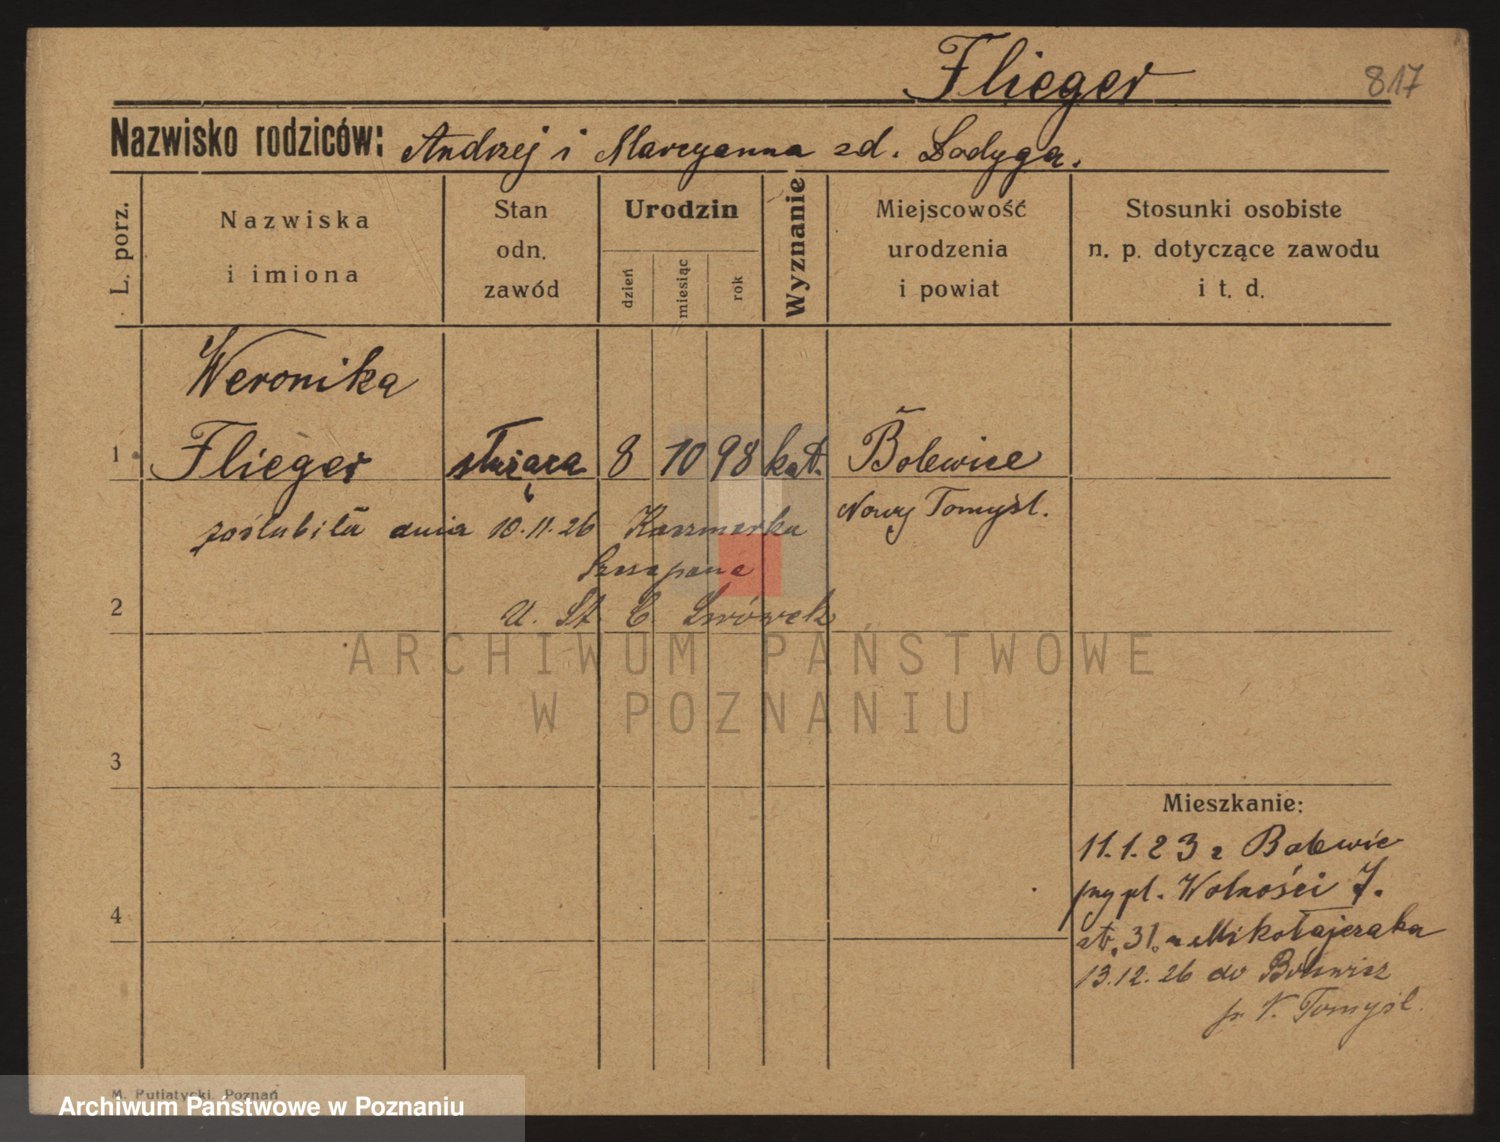 Flieger
817
Nazwisko rodziców: Andrzej i Marcyanna zd. Lodyga.
L. porz.
Nazwiska
i imiona
Stan
odn.
zawód
Urodzin
dzień
miesiąc
rok
Wyznanie
Miejscowość
urodzenia
i powiat
Stosunki osobiste
n. p. dotyczące zawodu
i t. d.
Weronika
1 Flieger służąca 8 10 98 kat. Bolewice
Nowy Tomyśl.
zaślubiła dnia 10.11.26 Kaczmarka
Szczepana
2
U. St. C Lwówek
ARCHIWUM PAŃSTWOWE
W POZNANIU
3
4
Mieszkanie:
11.1.23 z Bolewic
pl. Wolności 7.
31. Mikołajczaka
13.12.26 do Bolewicz
p. N. Tomyśl.
M. Putiatycki, Poznań
Archiwum Państwowe w Poznaniu